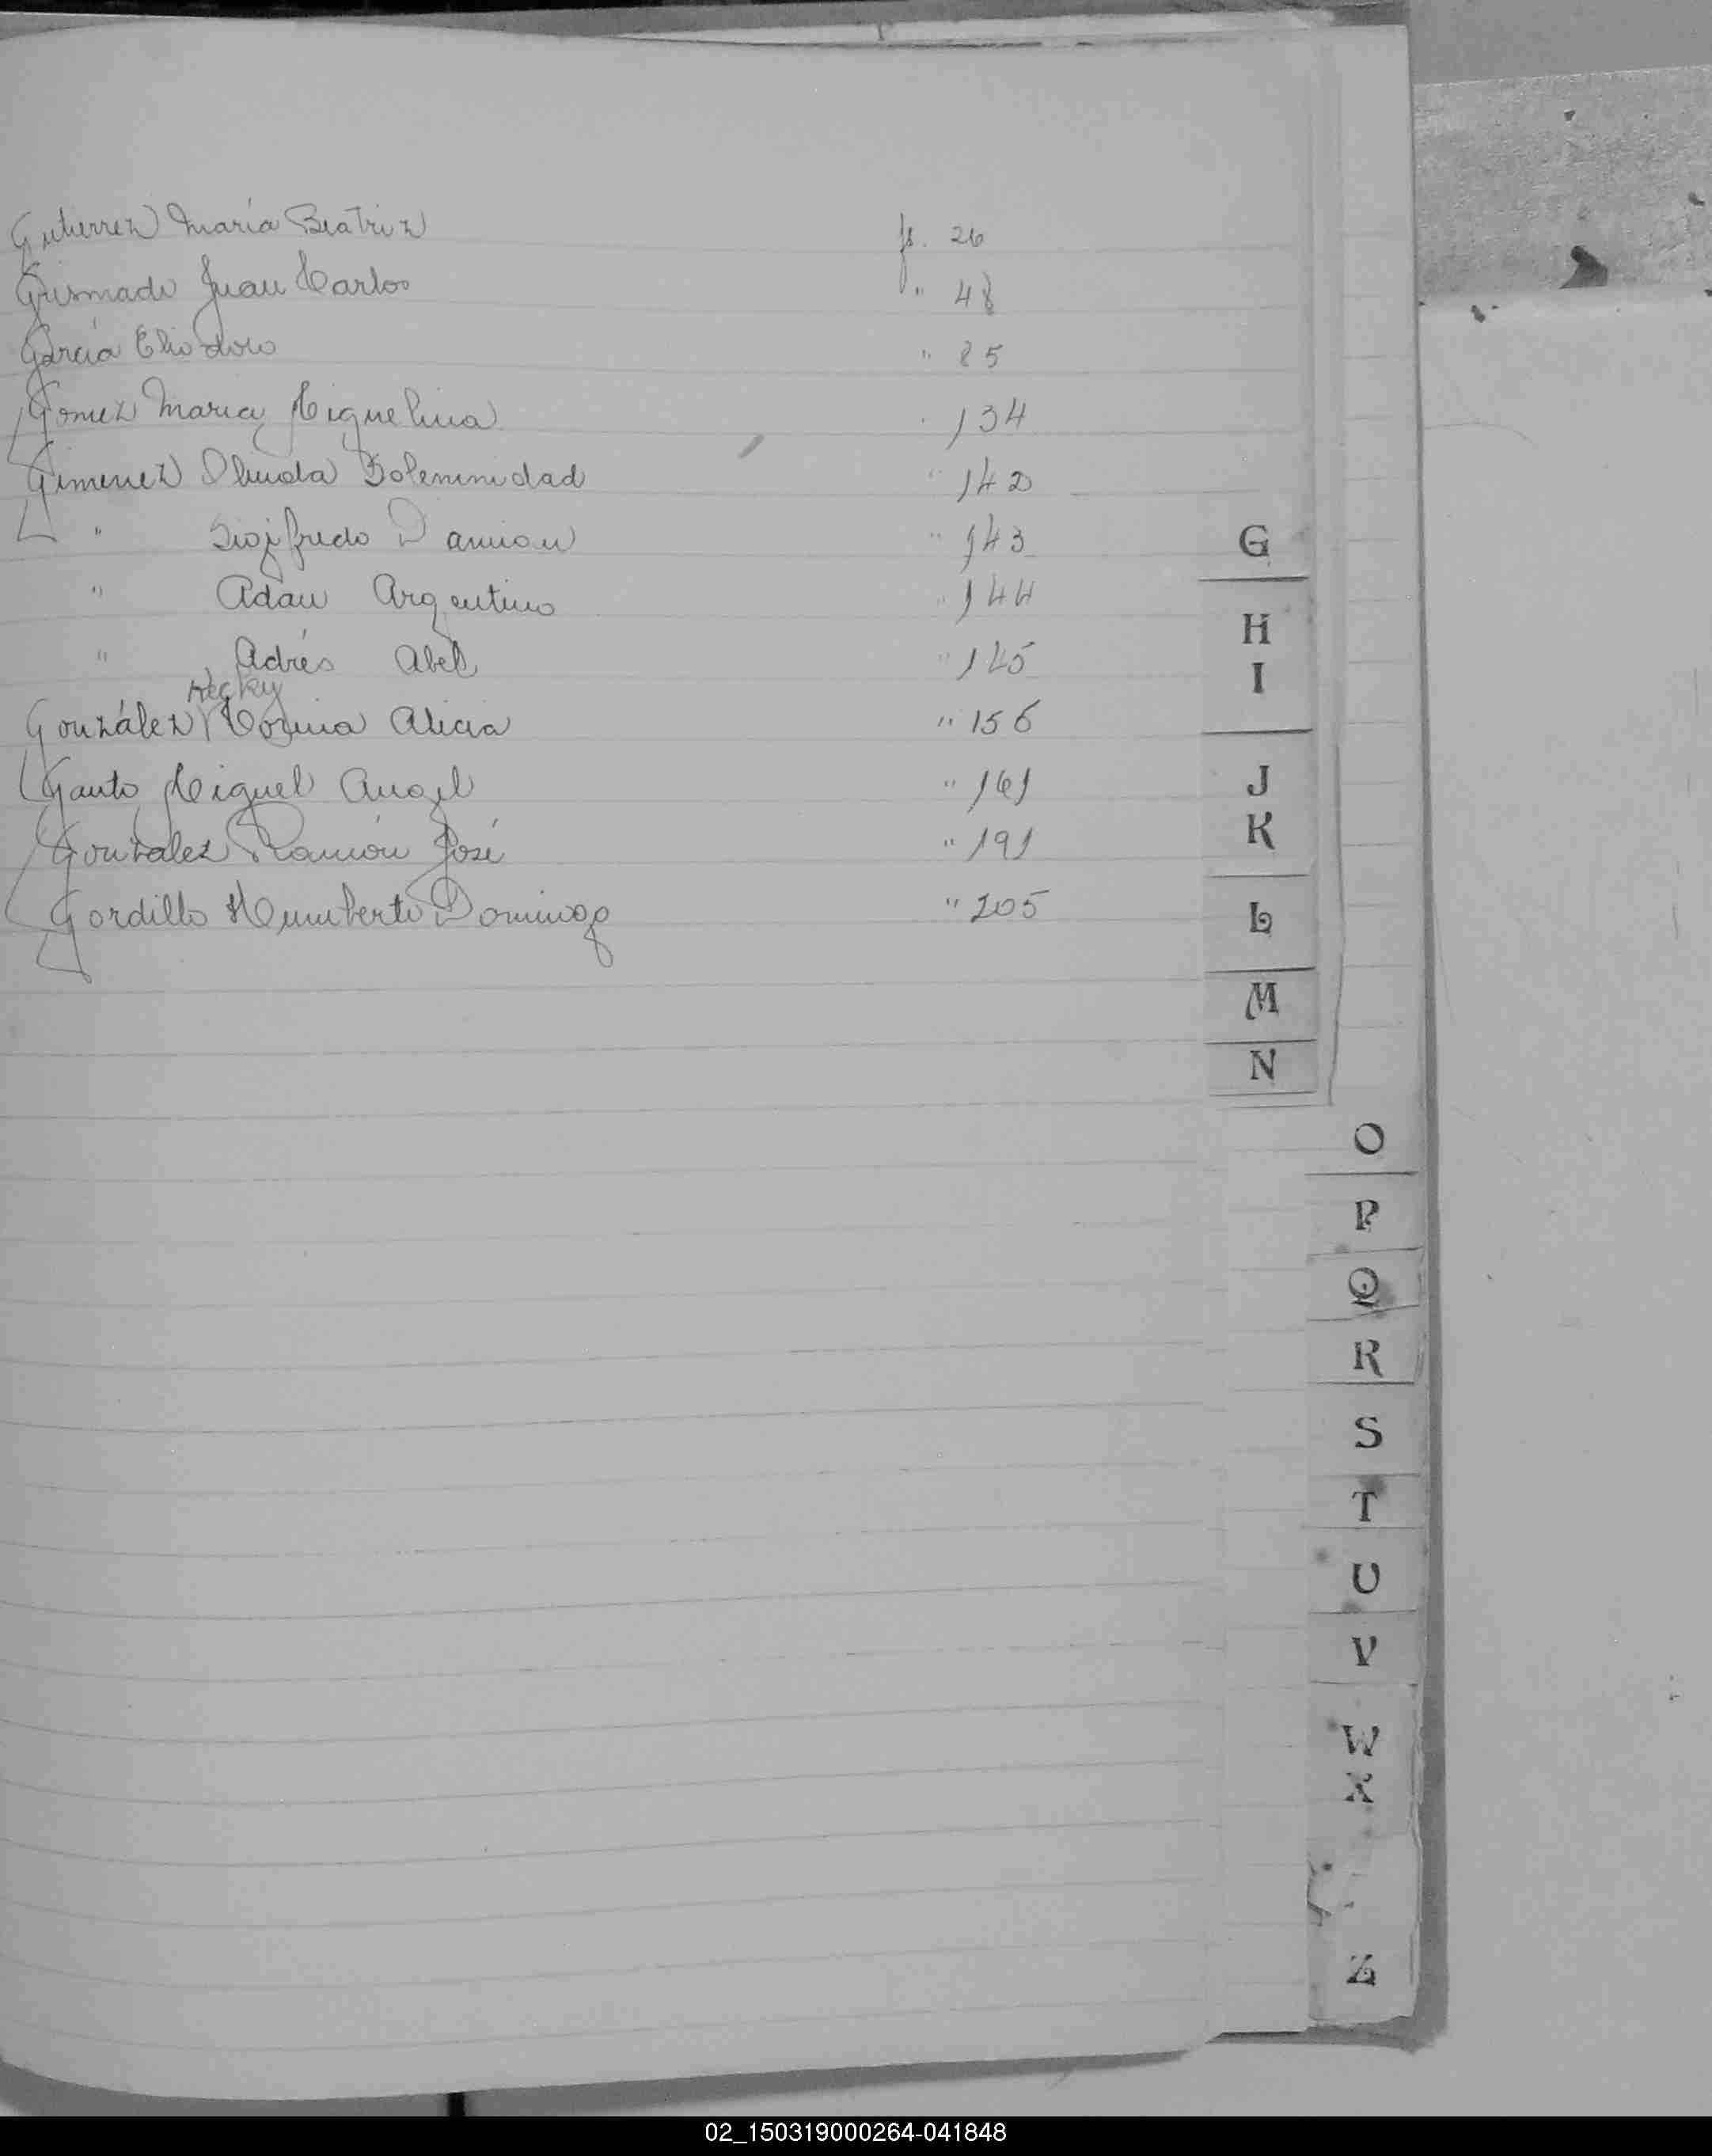 Gutierrez María Beatriz fs. 26
Grismado Juan Carlos " 48
García Eliodoro " 85
Gomez Maria Miguelina 134
Gimenez Olinda Solemnidad " 142
" Sigifredo Damian " 143
" Adan Argentino " 144
" Adrés Abel " 145
González Corina Alicia " 156
Gauto Miguel Angel " 161
Gonzalez Ramón José " 191
Gordillo Humberto Domingo " 205
G
H
I
J
K
L
M
N
O
P
Q
R
S
T
U
V
W
X
Z
02_150319000264-041848